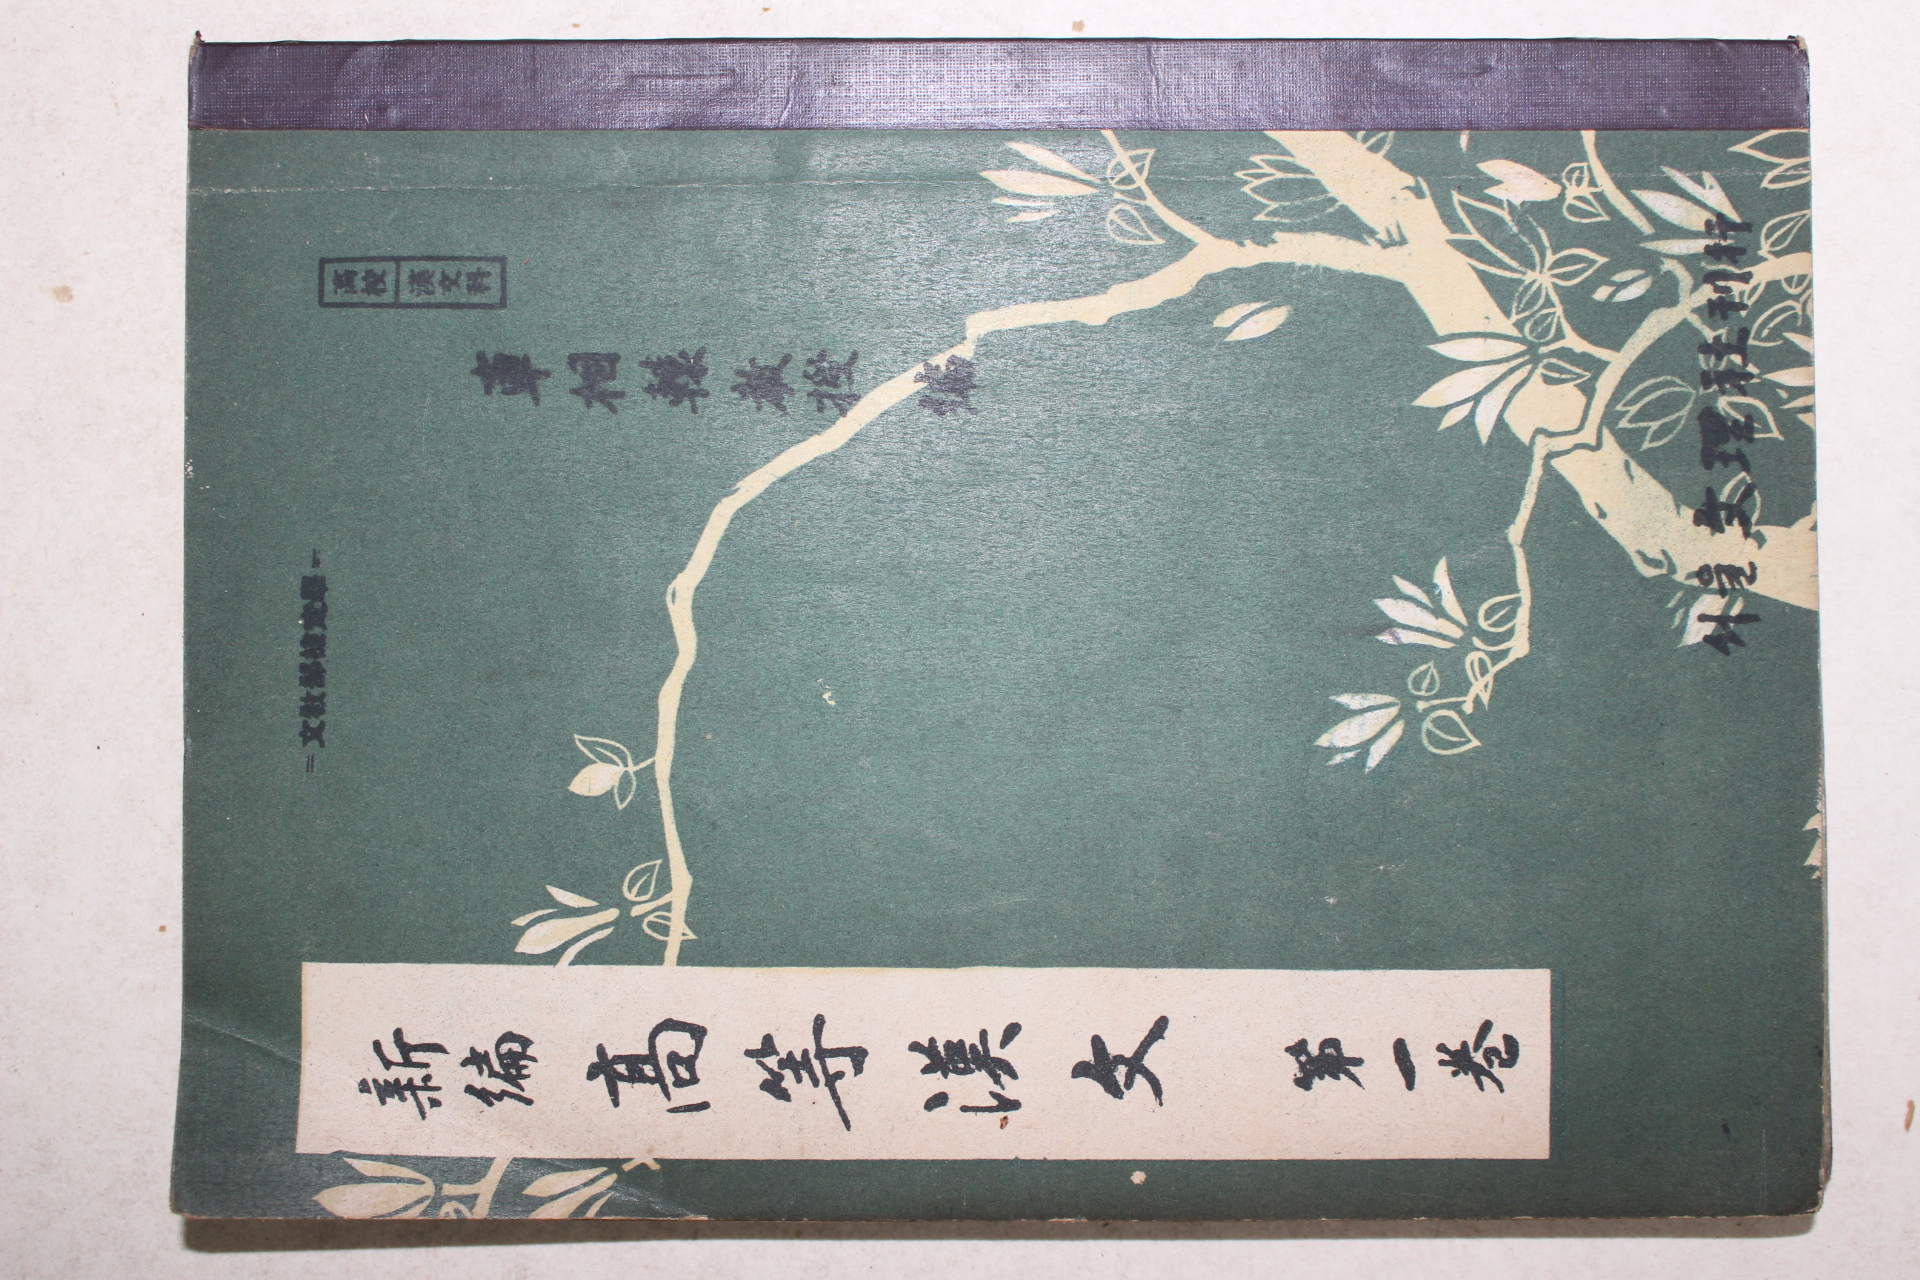 高校 漢文科
車相轅敎授 編
=文敎部檢定畢=
新編 高等漢文 第一卷
서울 文理社刊行